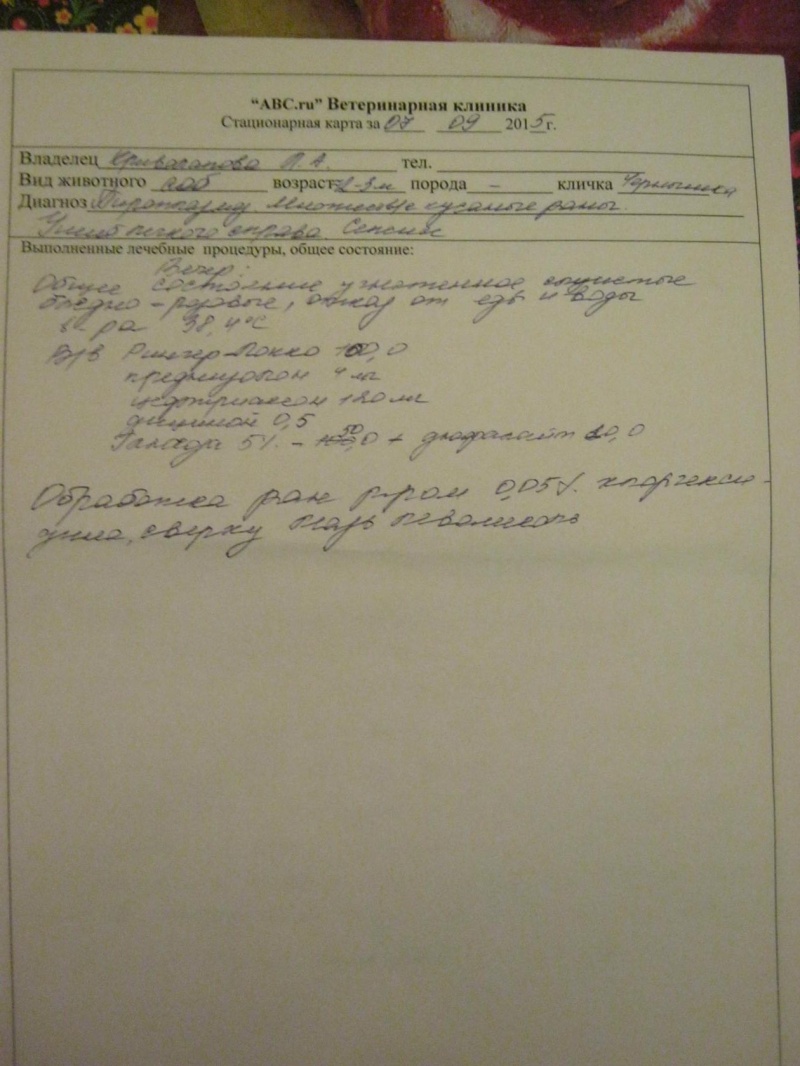 “АВС.ru” Ветеринарная клиника
Стационарная карта за 07 09 2015г.
Владелец П.А. тел.
Вид животного соб возраст 2-3м порода - кличка Чернышка
Диагноз Пироплазмоз. Множеств. кусаные раны.
Ушиб легкого справа. Сепсис
Выполненные лечебные процедуры, общее состояние:
Вечер:
Общее состояние угнетенное слизистые
бледно-розовые, отказ от еды и воды
38,4°С
В/в Рингер-Локка 100,0
преднизолон 4 мг
цефтриаксон 180 мг
0,5
5% - 50,0 + дюфалайт 20,0
Обработка ран р-ром 0,05% хлоргекси-
дина, сверху мазь левомеколь